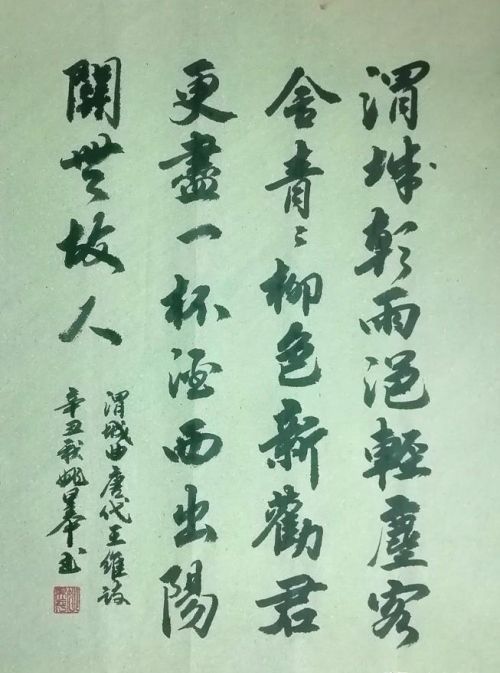 渭城朝雨浥輕塵客
舍青〻柳色新勸君
更盡一杯酒西出陽
關無故人
渭城曲唐代王維詩
辛丑秋姚